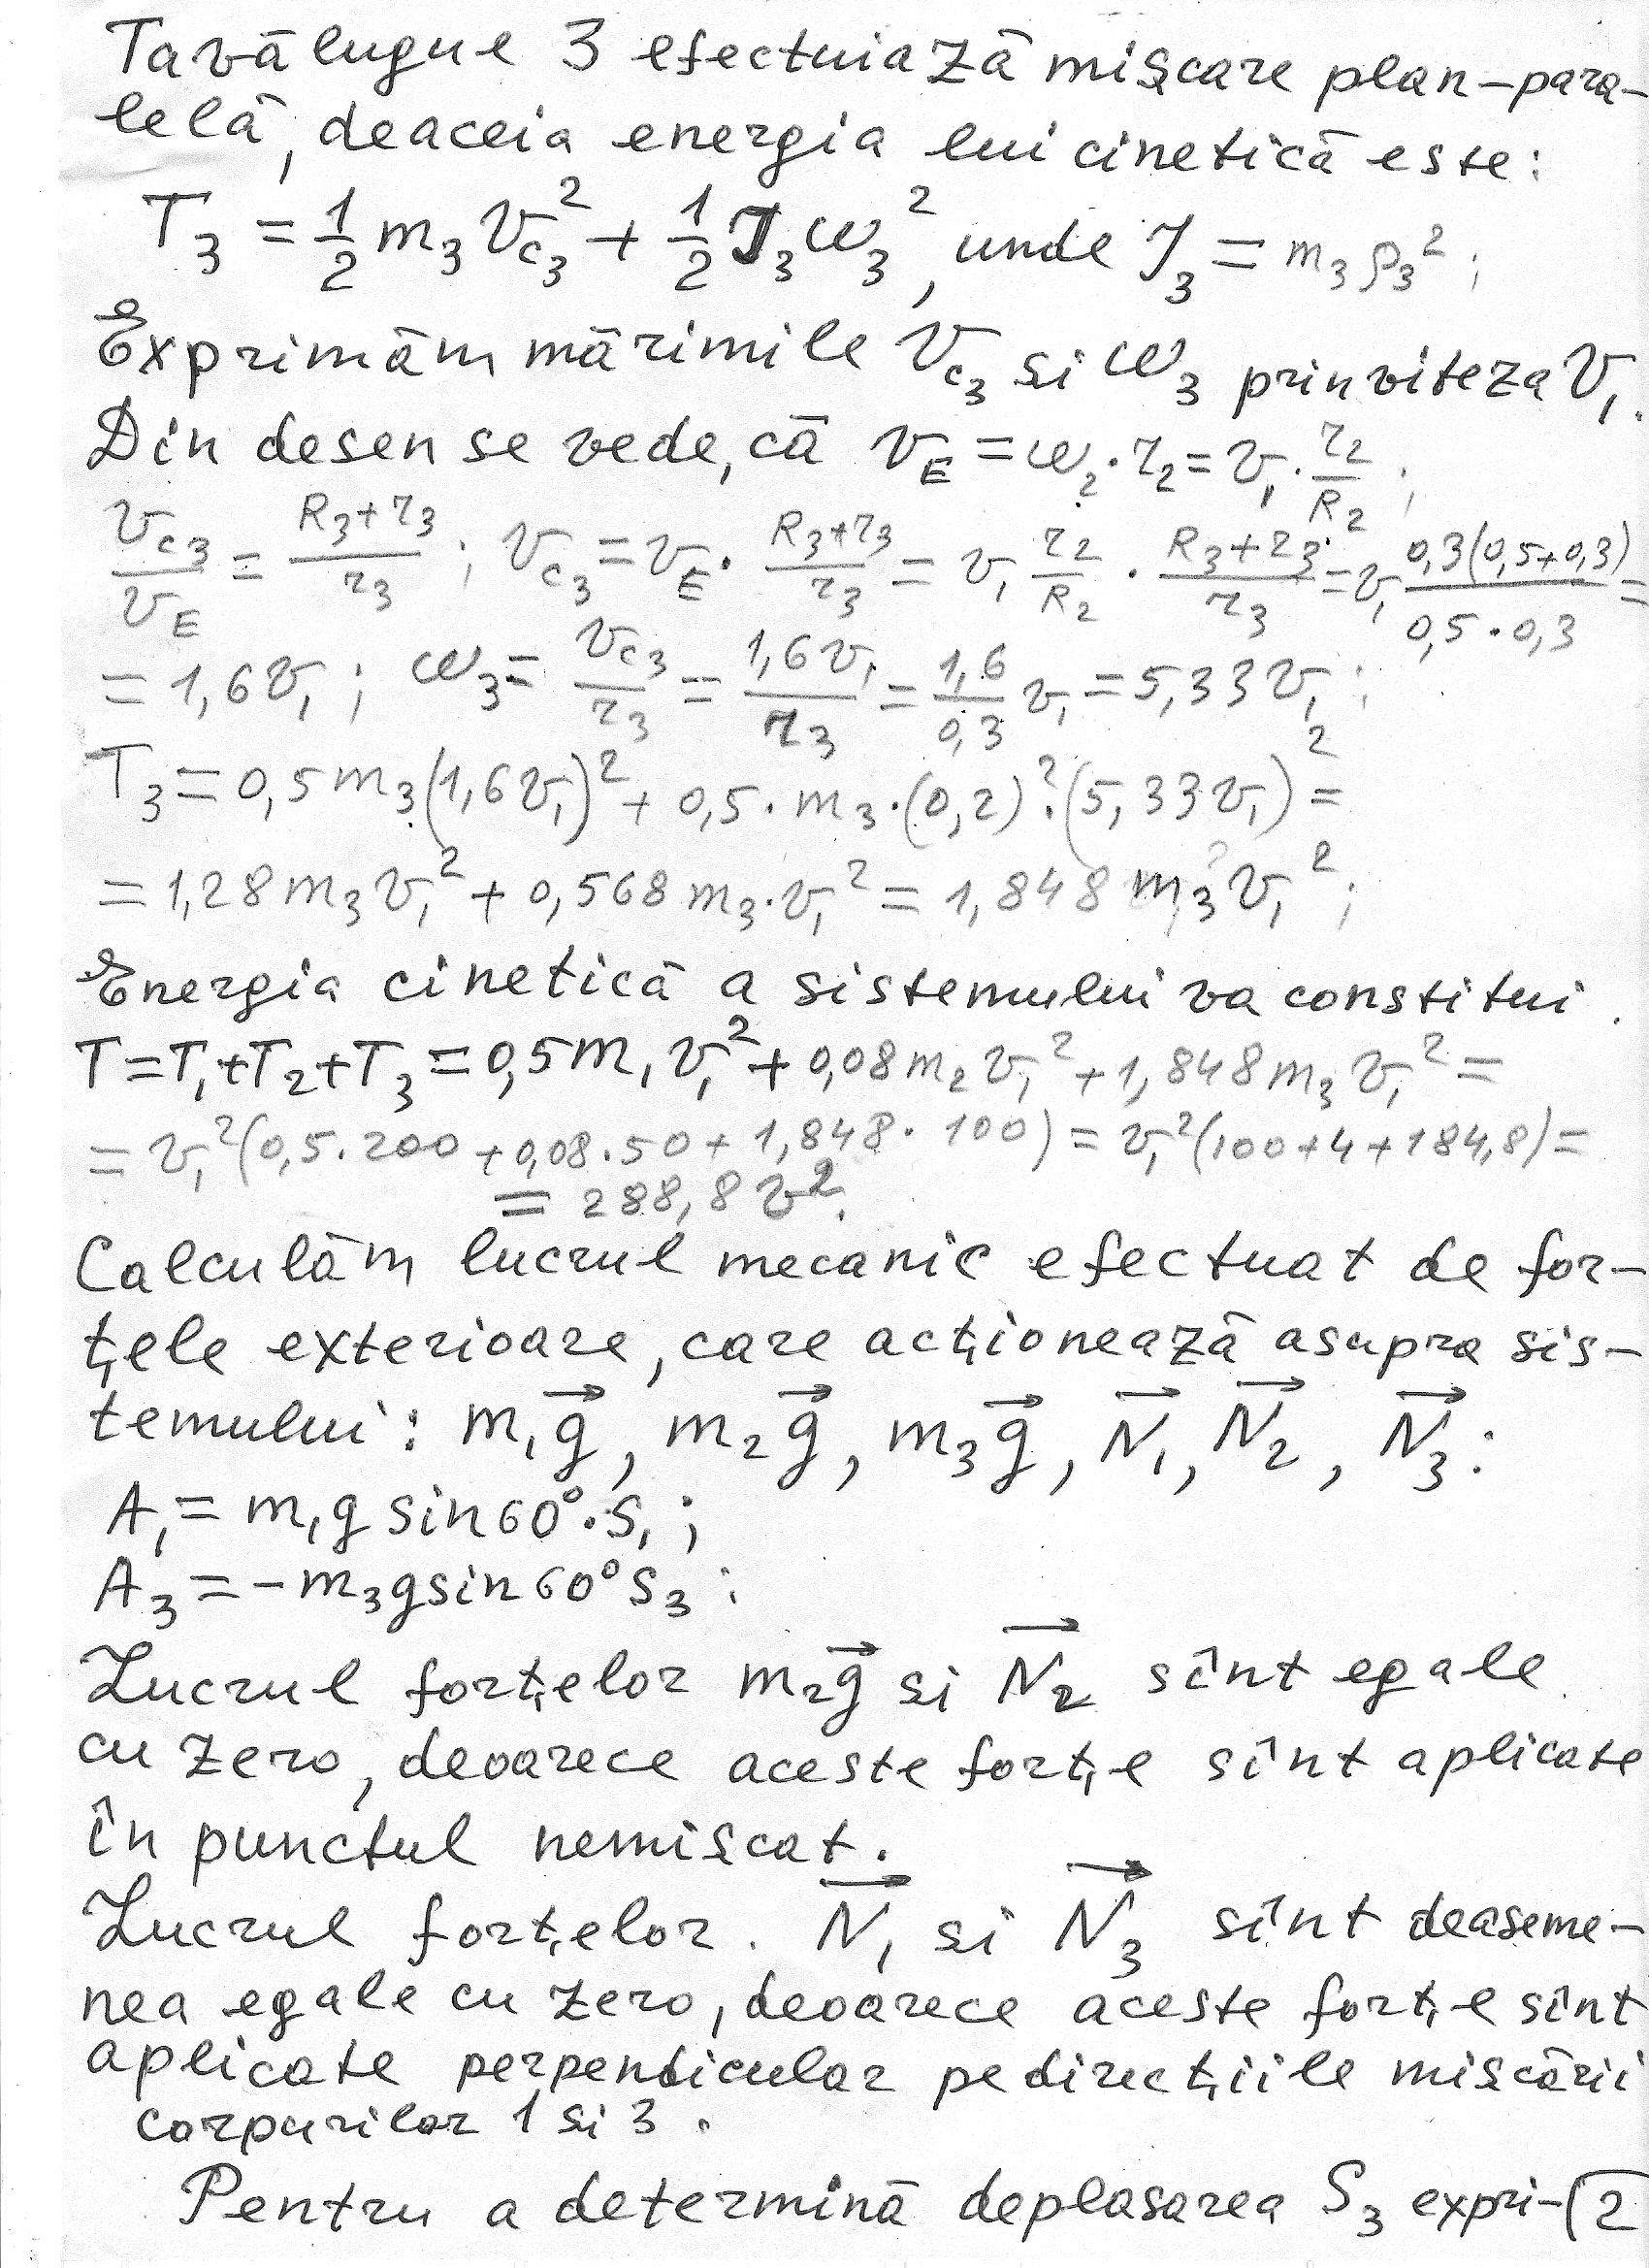 Tavălugul 3 efectuiază mișcare plan-para-
lelă, deaceia energia lui cinetică este:
T₃ = 1/2 m₃ v_c₃² + 1/2 J₃ ω₃², unde J₃ = m₃ ρ₃²;
Exprimăm mărimile v_c₃ si ω₃ prin viteza v₁.
Din desen se vede, că v_E = ω₂·r₂ = v₁·r₂/R₂;
v_c₃/v_E = (R₃+r₃)/r₃; v_c₃ = v_E·(R₃+r₃)/r₃ = v₁ r₂/R₂ · (R₃+r₃)/r₃ = v₁ 0,3(0,5+0,3)/(0,5·0,3) =
= 1,6v₁; ω₃ = v_c₃/r₃ = 1,6v₁/r₃ = 1,6/0,3 v₁ = 5,33v₁;
T₃ = 0,5m₃(1,6v₁)² + 0,5·m₃·(0,2)²·(5,33v₁)² =
= 1,28m₃v₁² + 0,568m₃·v₁² = 1,848m₃v₁²;
Energia cinetică a sistemului va constitui.
T = T₁+T₂+T₃ = 0,5m₁v₁² + 0,08m₂v₁² + 1,848m₃v₁² =
= v₁²(0,5·200 + 0,08·50 + 1,848·100) = v₁²(100+4+184,8) =
= 288,8v².
Calculăm lucrul mecanic efectuat de for-
țele exterioare, care acționează asupra sis-
temului: m₁g⃗, m₂g⃗, m₃g⃗, N⃗₁, N⃗₂, N⃗₃:
A₁ = m₁g sin60°·S₁;
A₃ = -m₃g sin60°S₃:
Lucrul forțelor m₂g⃗ si N⃗₂ sînt egale
cu zero, deoarece aceste forțe sînt aplicate
în punctul nemișcat.
Lucrul forțelor. N⃗₁ si N⃗₃ sînt deaseme-
nea egale cu zero, deoarece aceste forțe sînt
aplicate perpendicular pe direcțiile mișcării
corpurilor 1 si 3.
Pentru a determină deplasarea S₃ expri- 2